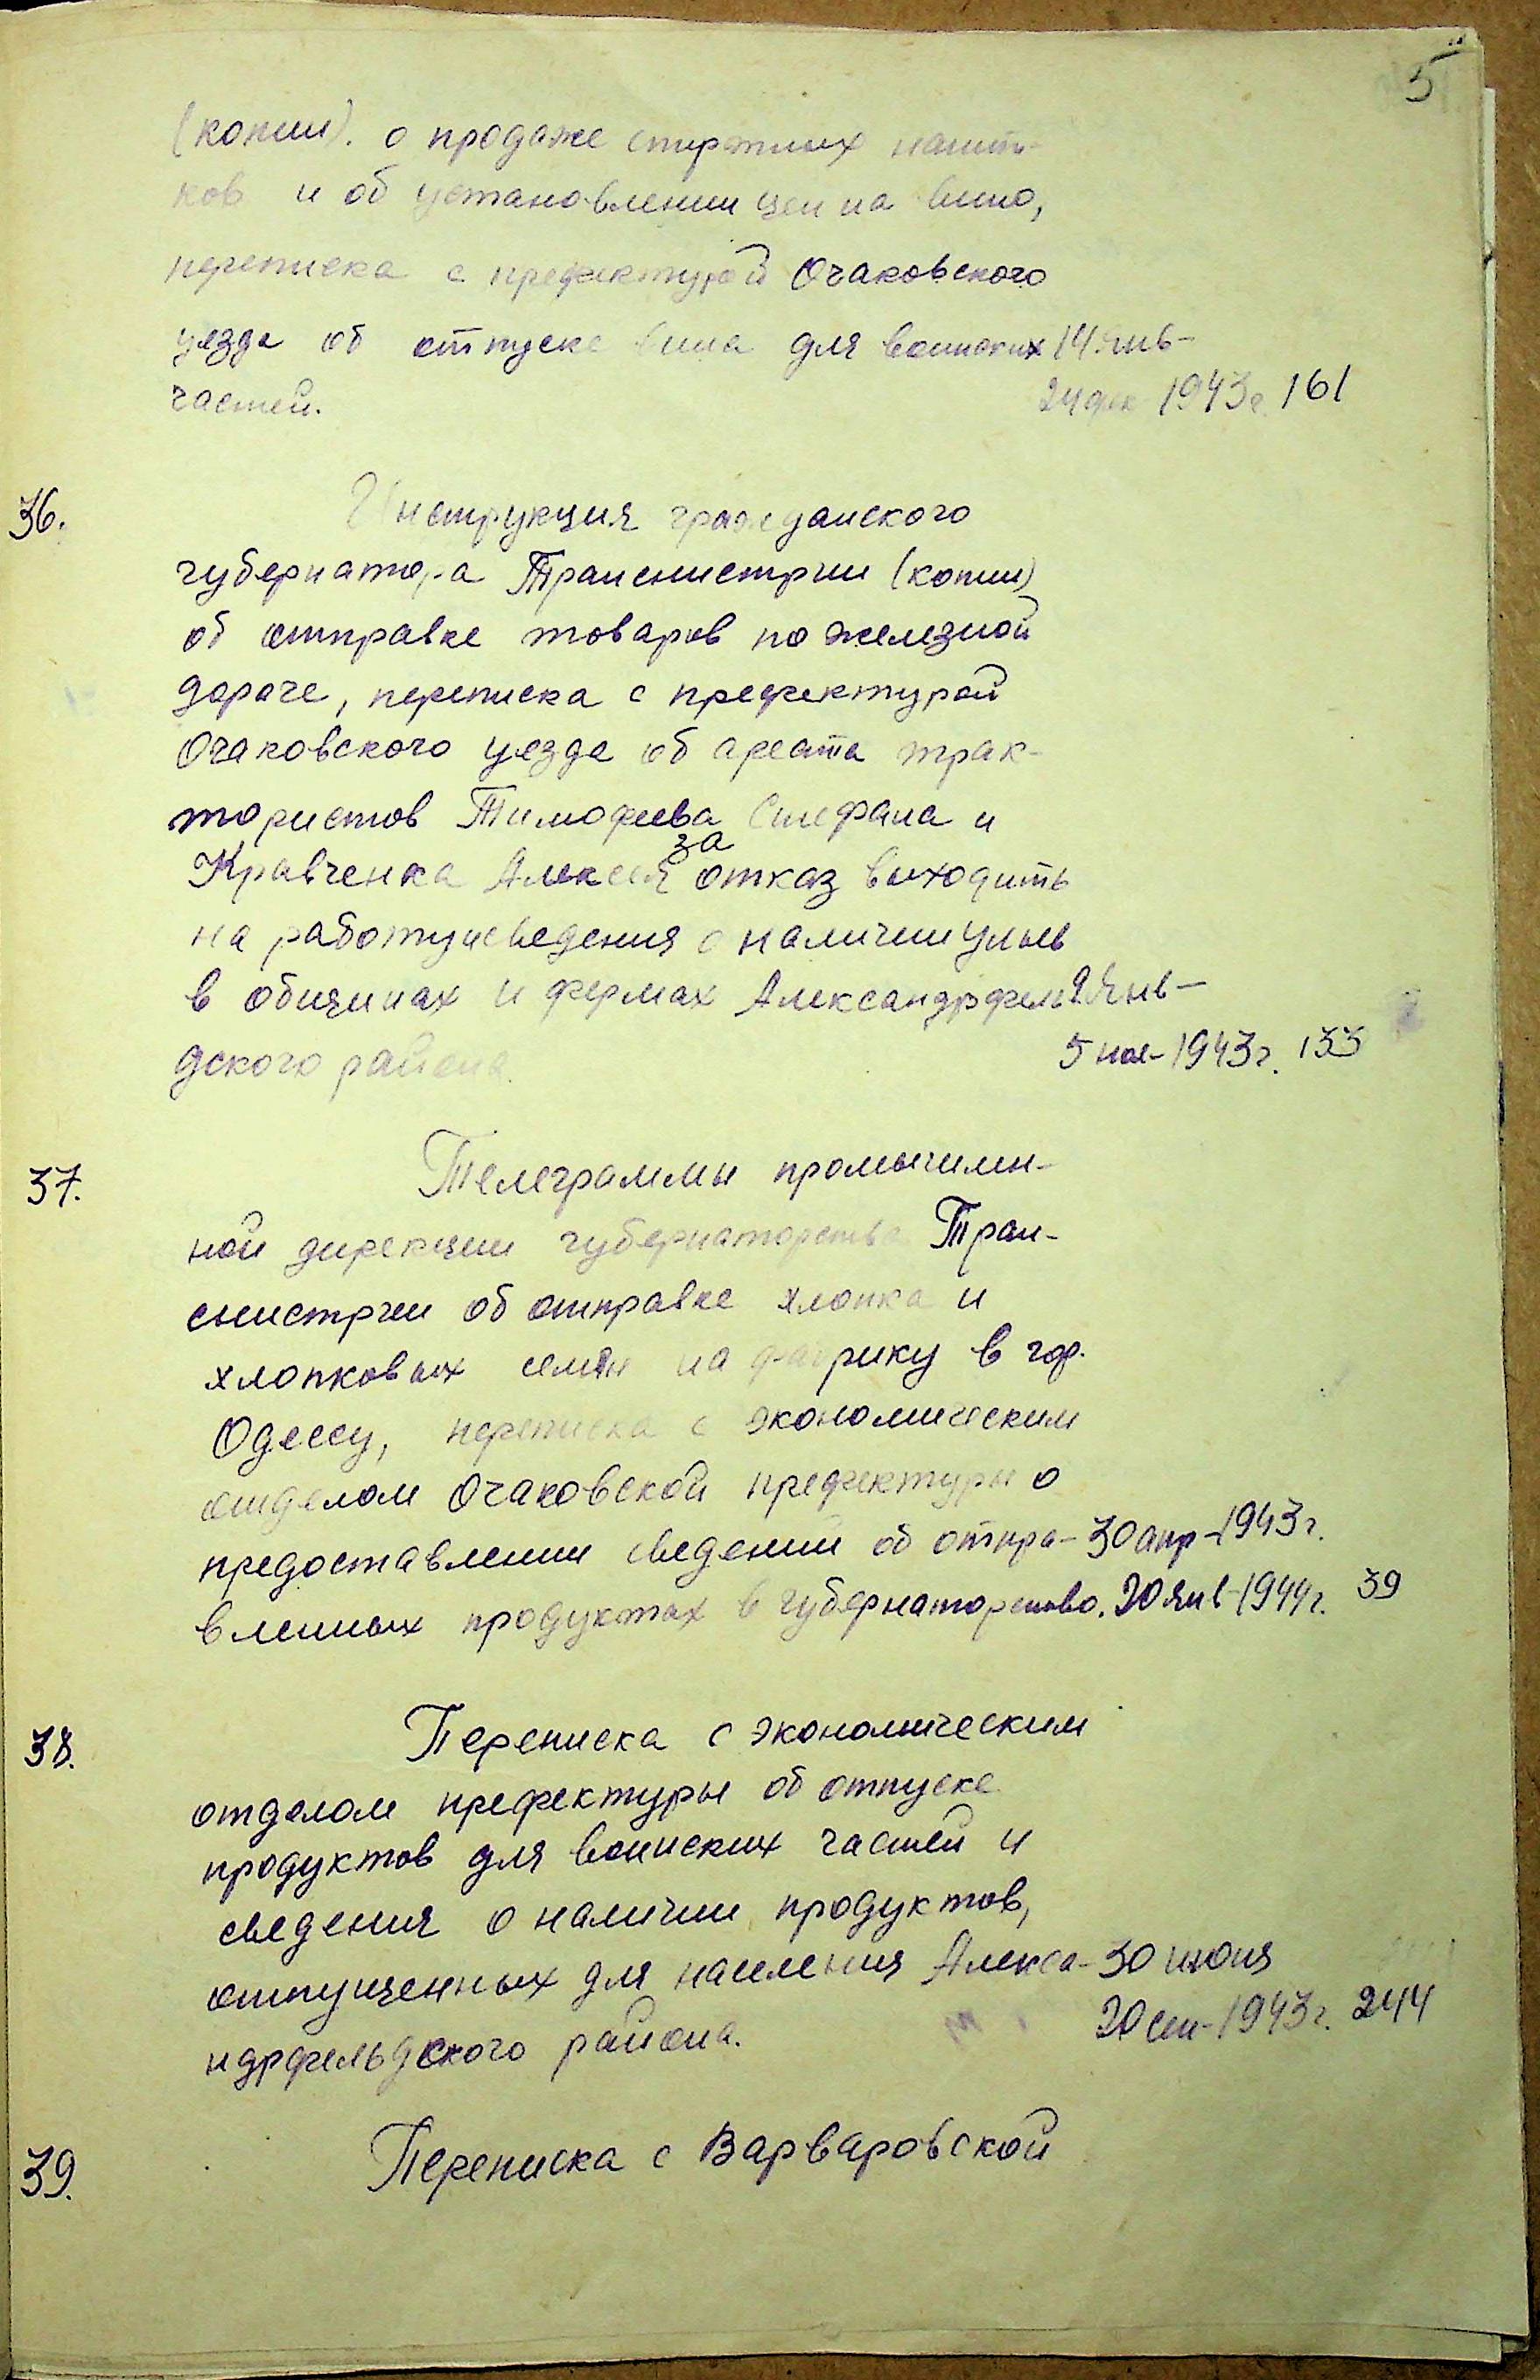 5
(копии). о продаже спиртных напит-
ков и об установлении цен на вино,
переписка с префектурой Очаковского
уезда об отпуске вина для воинских 14 янв-
частей. 24 дек 1943г. 161
36. Инструкция гражданского
губернатора Транснистрии (копии)
об отправке товаров по железной
дороге, переписка с префектурой
Очаковского уезда об ареста трак-
тористов Тимофеева Стефана и
за
Кравченка Алексея отказ выходить
на работу, сведения о наличии ульев
в общинах и фермах Александрфель 9 янв-
дского района. 5 ноя-1943г. 133
37. Телеграммы промышлен-
ной дирекции губернаторства Тран-
снистрии об отправке хлопка и
хлопковых семян на фабрику в гор.
Одессу, переписка с экономическим
отделом Очаковской префектуры о
предоставлении сведений об отпра- 30 апр-1943г.
вленных продуктах в губернаторство. 20 янв-1944г. 39
38. Переписка с экономическим
отделом префектуры об отпуске
продуктов для воинских частей и
сведения о наличии продуктов,
отпущенных для населения Алекса- 30 июня
ндрфельдского района. 20 сен-1943г. 244
39. Переписка с Варваровской